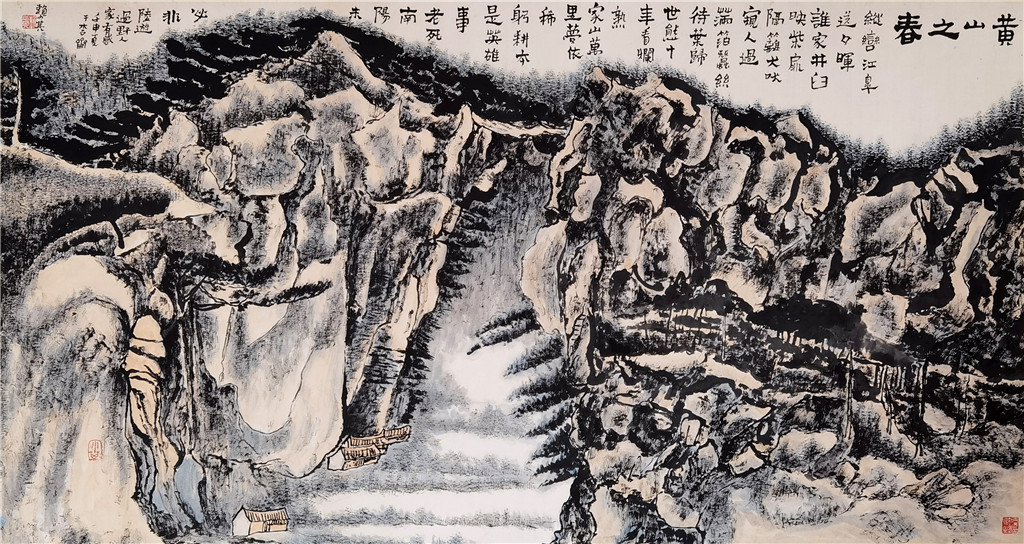 黄山之春
縱轡江皐
送夕暉
誰家井臼
映柴扉
隔籬犬吠
窺人過
滿箔蠶絲
待葉歸
世態十
年看爛
熟
家山萬
里夢依
稀
躬耕本
是英雄
事
老死
南
陽
未
必
非
陸遊
過野人
家有感
壬申夏